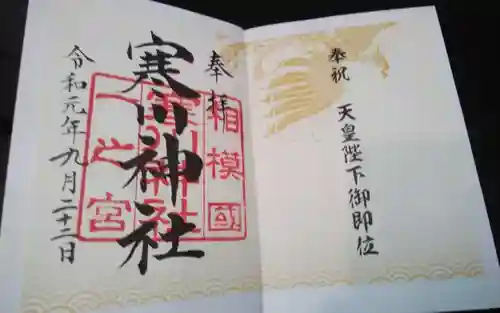 奉祝
天皇陛下御即位
奉拝
寒川神社
令和元年九月二十二日
相模國
寒川神社
一之宮